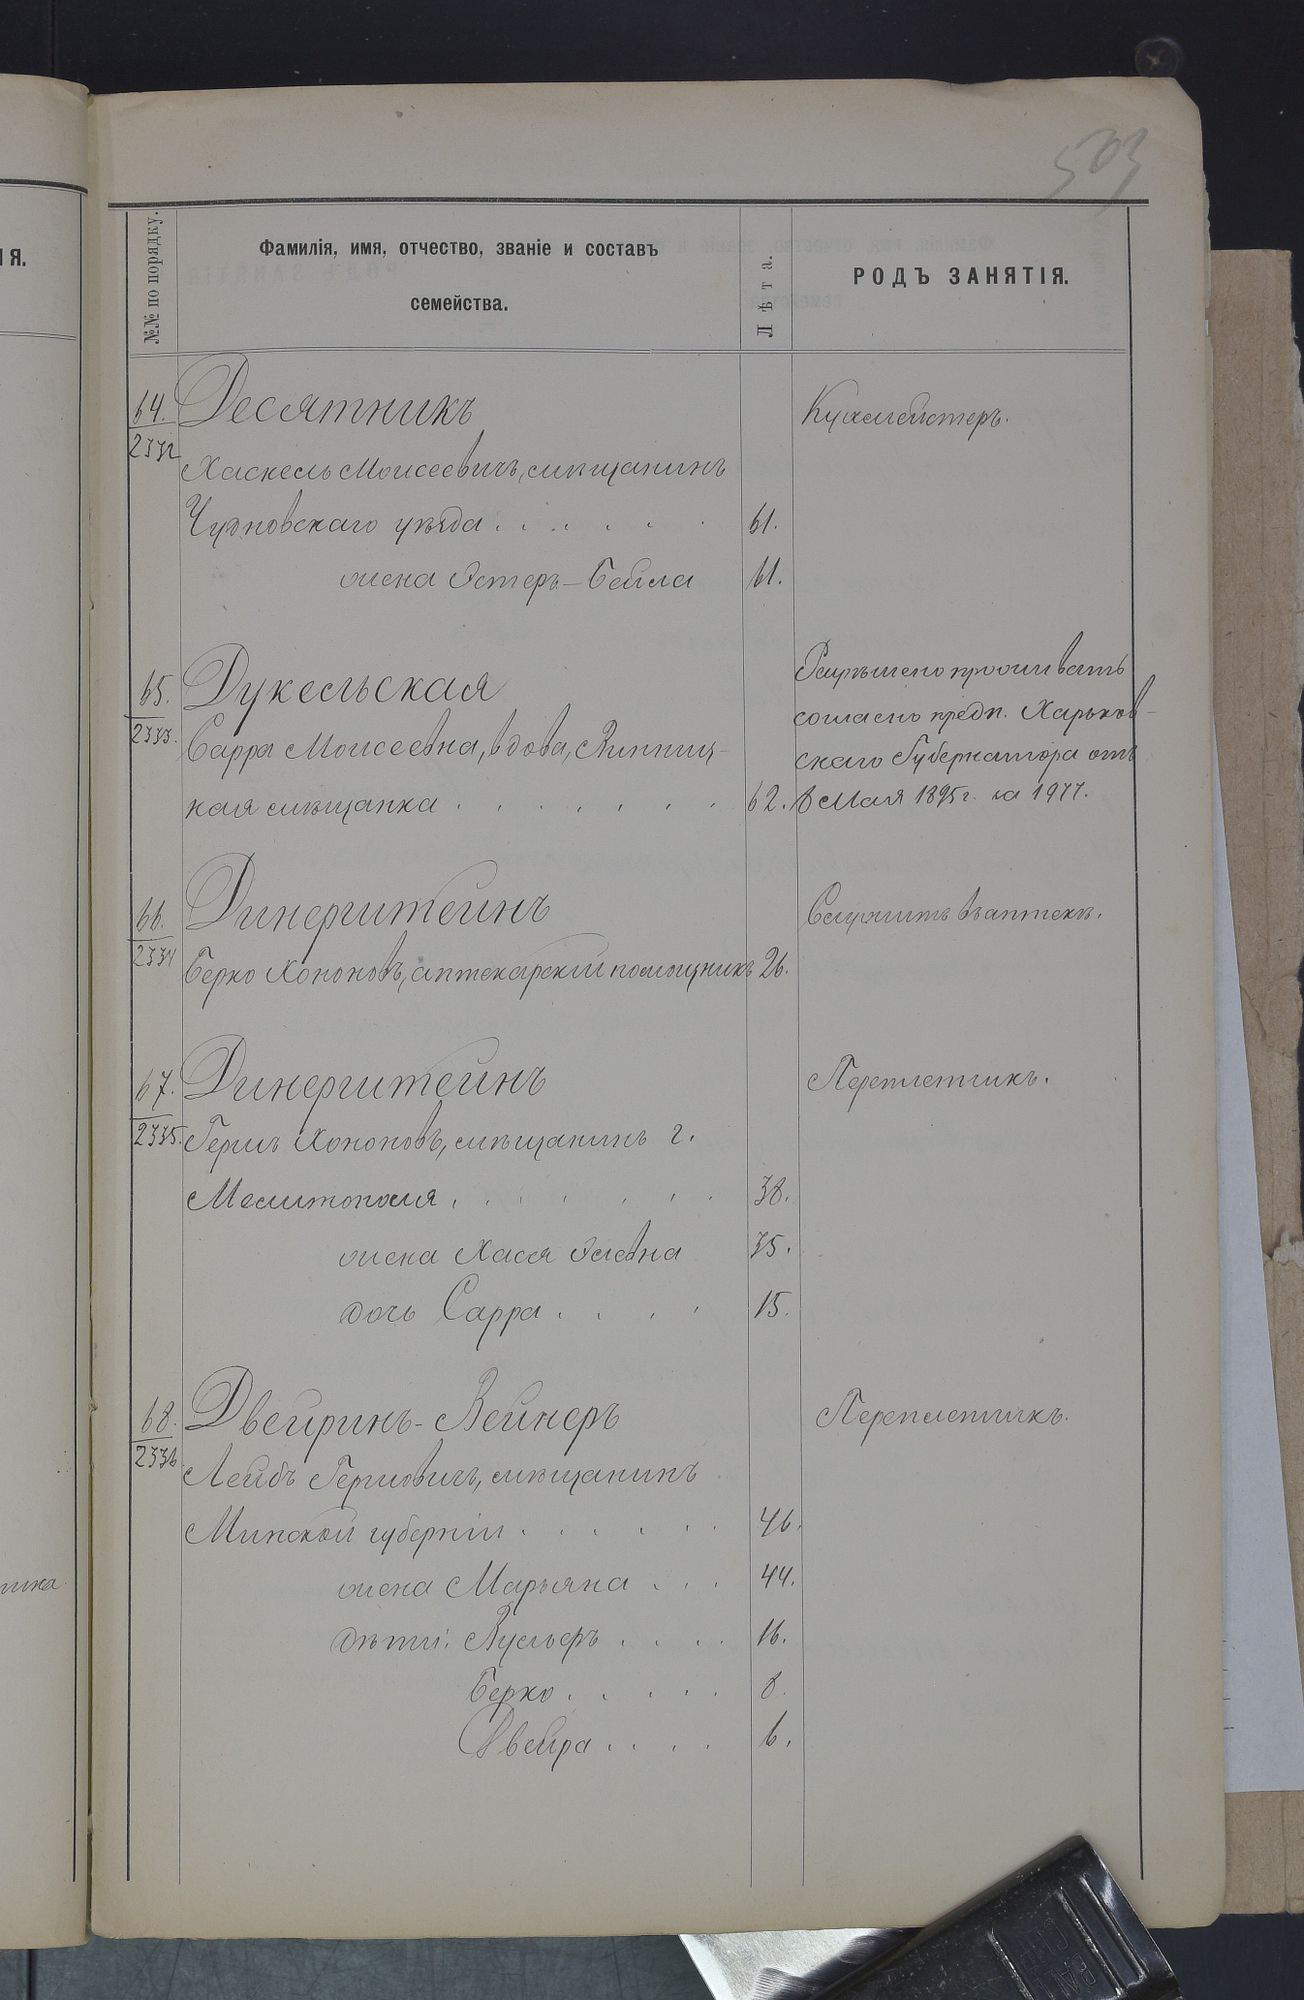 503
ІЯ.
№№ по порядку.
Фамилія, имя, отчество, званіе и составъ
семейства.
Лѣта.
РОДЪ ЗАНЯТІЯ.
64. Десятникъ Кухмейстеръ.
2332
Хаскель Моисеевичъ, мѣщанинъ
Чудновскаго уѣзда . . . . . 61.
жена Эстеръ-Бейла 61.
65. Дукельская
2333.
Сарра Моисеевна, вдова, Винниц-
кая мѣщанка . . . . . . 62.
Разрѣшено проживать
согласно предп. Харьков-
скаго Губернатора отъ
6 Мая 1895 г. за 1977.
66. Динерштейнъ Служитъ въ аптекѣ.
2334
Берко Хононовъ, аптекарскій помощникъ 26.
67. Динерштейнъ Переплетчикъ.
2335.
Гершъ Хононовъ, мѣщанинъ г.
Мелитополя . . . . . . 38.
жена Хася Элевна 35.
дочь Сарра . . . . 15.
68. Двейринъ-Вейнеръ Переплетчикъ.
2336
Лейбъ Гершовичъ, мѣщанинъ
Минской губерніи . . . . . . 46.
жена Марьяна . . . 44.
дѣти: . . . . 16.
Берко . . . . . 8.
Двейра . . . . 6.